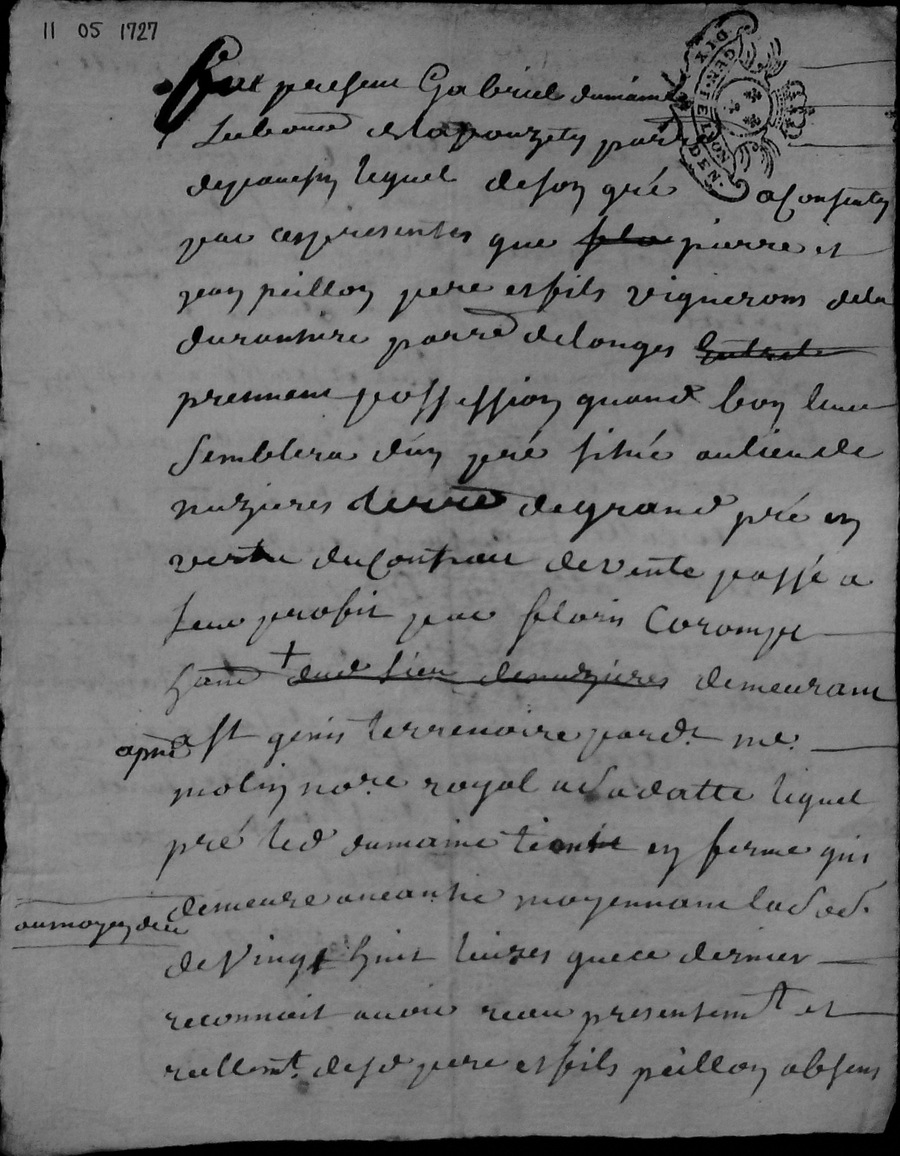 11 05 1727
Fut present Gabriel dumaine
DIX DEN. GER. ET LYON
Laboure de la pouzety parr
lequel de son gré a consenty
par ces presentes que pierre et
jean peillon pere et fils vignerons de la
durantiere parre de longes
prennent possession quand bon leur
semblera d'un pré situé au lieu de
muzieres terre de grand pré en
vertu du contrait de vente passé a
leur profit par floris Corompt
+ dud lieu de muzieres demeurant
a st genis terrenoire pardt me
molin nore royal a sa datte lequel
pré led dumaine tient en ferme qui
demeure aneantie moyennant la
au moyen de
de vingt huit livres que ce dernier
reconnait avoir receu presentemt et
reellemt desd pere et fils peillon absens